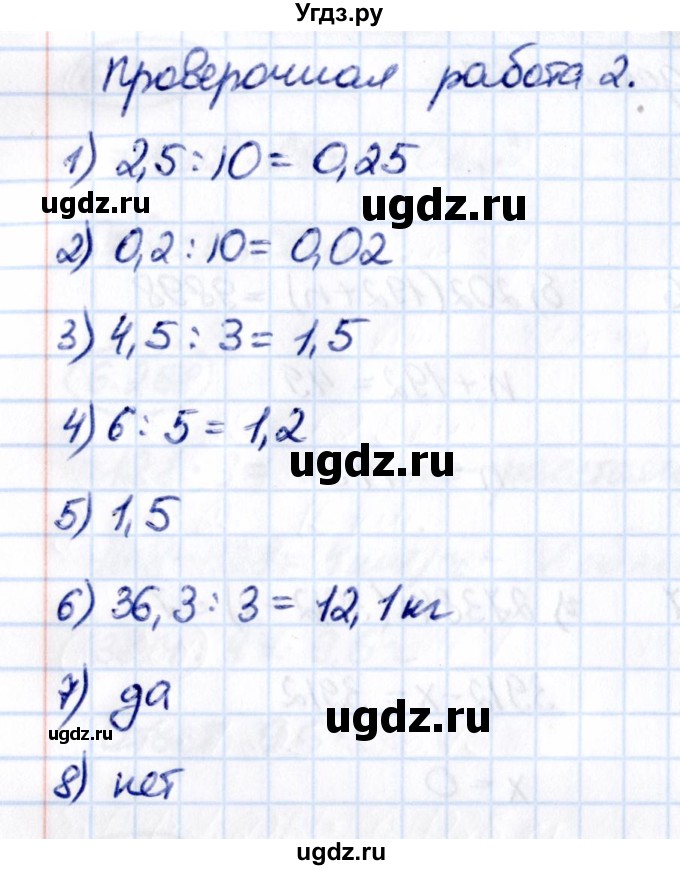 Угдз.ру
Проверочная работа 2.
1) 2,5 : 10 = 0,25
ugdz.ru
ugdz.ru
2) 0,2 : 10 = 0,02
3) 4,5 : 3 = 1,5
4) 6 : 5 = 1,2
ugdz.ru
5) 1,5
6) 36,3 : 3 = 12,1 кг
7) да
ugdz.ru
ugdz.ru
8) нет
ugdz.ru